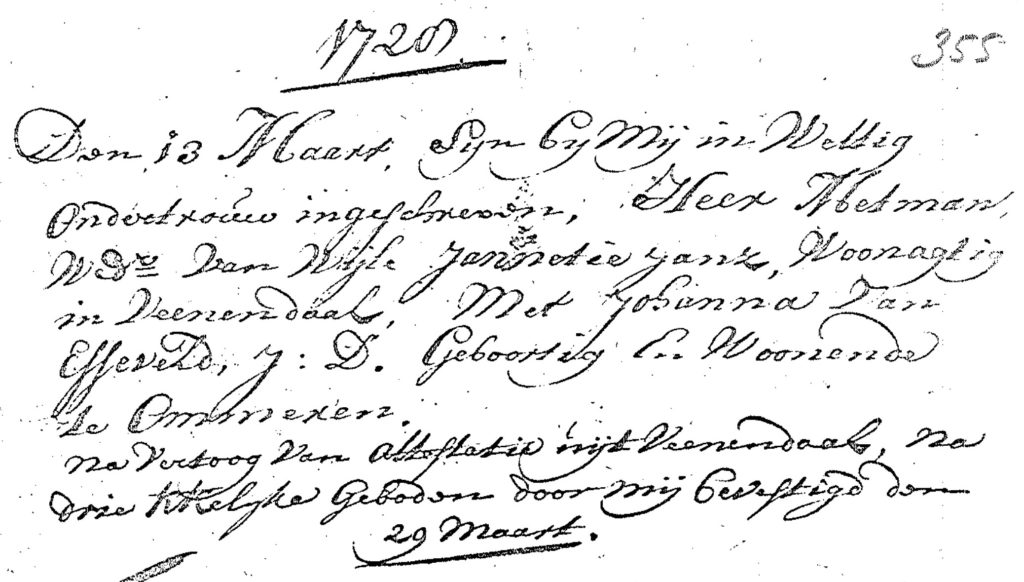 1728
355
Den 13 Maart, Sijn bij Mij in Wettig
Ondertrouw ingeschreven, Heer Metman,
Wedr. Van Wijle Jannetie Janz, Woonagtig
in Veenendaal, Met Johanna Van
Esseveld, J: D. Geboortig En Woonende
te Ommeren.
na Vertoog Van Attestatie uijt Veenendaal, na
drie kkelyke Geboden door mij bevestigd den
29 Maart.